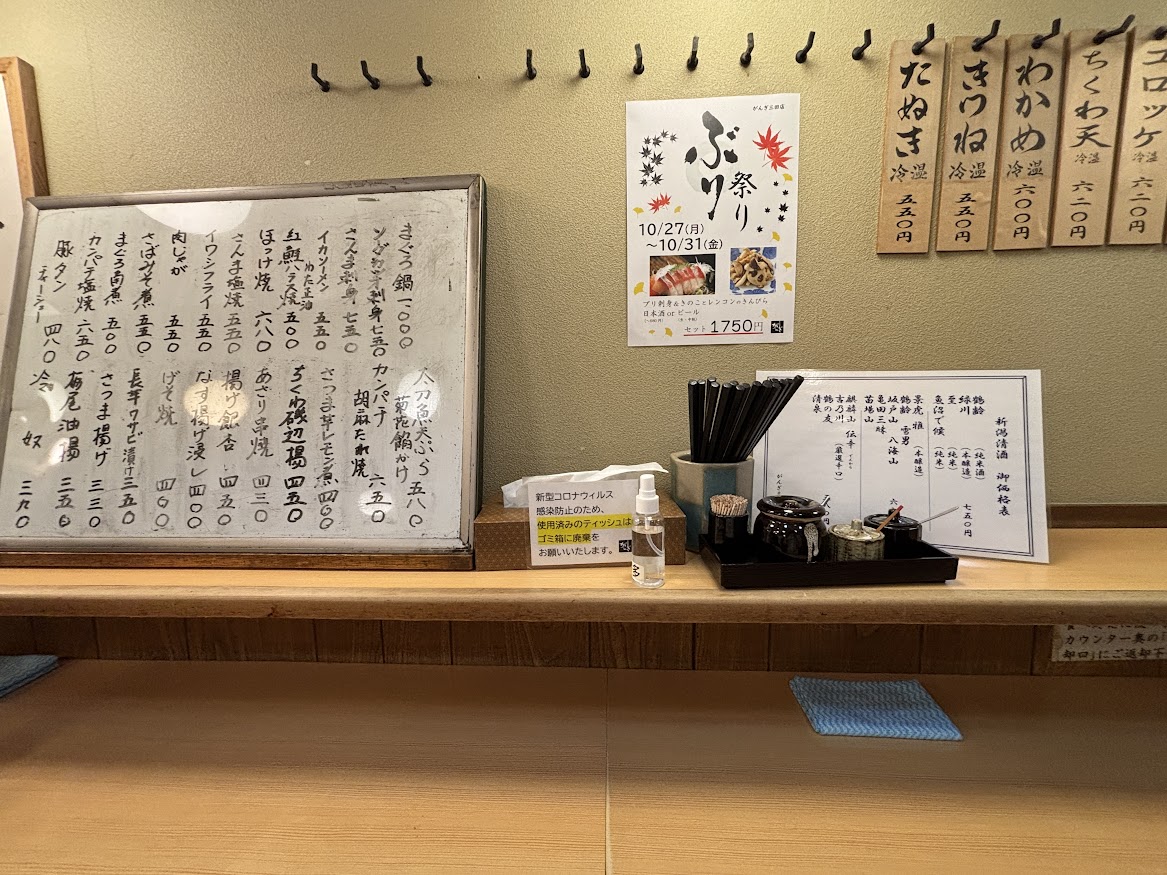 まぐろ鍋 一、〇〇〇
さんま刺身 七五〇
イカソーメン
わた正油 五五〇
紅鮭ハラス焼 五〇〇
ほっけ焼 六八〇
さんま塩焼 五五〇
イワシフライ 五五〇
肉じゃが 五五〇
さばみそ煮 五五〇
まぐろ角煮 五〇〇
カンパチ塩焼 六五〇
豚タン
四八〇
太刀魚天ぷら 五八〇
菊花餡かけ
カンパチ
胡麻たれ焼 六五〇
さつま芋レモン煮 四〇〇
ちくわ磯辺揚 四五〇
あさり串焼 四三〇
揚げ銀杏 四五〇
なす揚げ浸し 四〇〇
げそ焼 四〇〇
長芋ワサビ漬け 三五〇
さつま揚げ 三三〇
栃尾油揚 三五〇
冷奴 三九〇
がんぎ三田店
ぶり祭り
10/27(月)
～10/31(金)
ブリ刺身&きのことレンコンのきんぴら
日本酒 or ビール
セット 1750円
たぬき 冷温 五五〇円
きつね 冷温 五五〇円
わかめ 冷温 六〇〇円
ちくわ天 冷温 六二〇円
コロッケ 冷温 六二〇円
新型コロナウィルス
感染防止のため、
使用済みのティッシュは
ゴミ箱に廃棄を
お願いいたします。
新潟清酒 御価格表
七五〇円
鶴齢 (純米酒)
緑川 (本醸造)
至 (純米)
魚沼で候 (純米)
景虎 雅 (本醸造)
鶴齢 雪男
坂戸山 八海山
亀田三昧
苗場山
麒麟山 伝辛 (厳選辛口)
吉乃川
鶴の友
清泉
カウンター奥の
却口」にご返却下